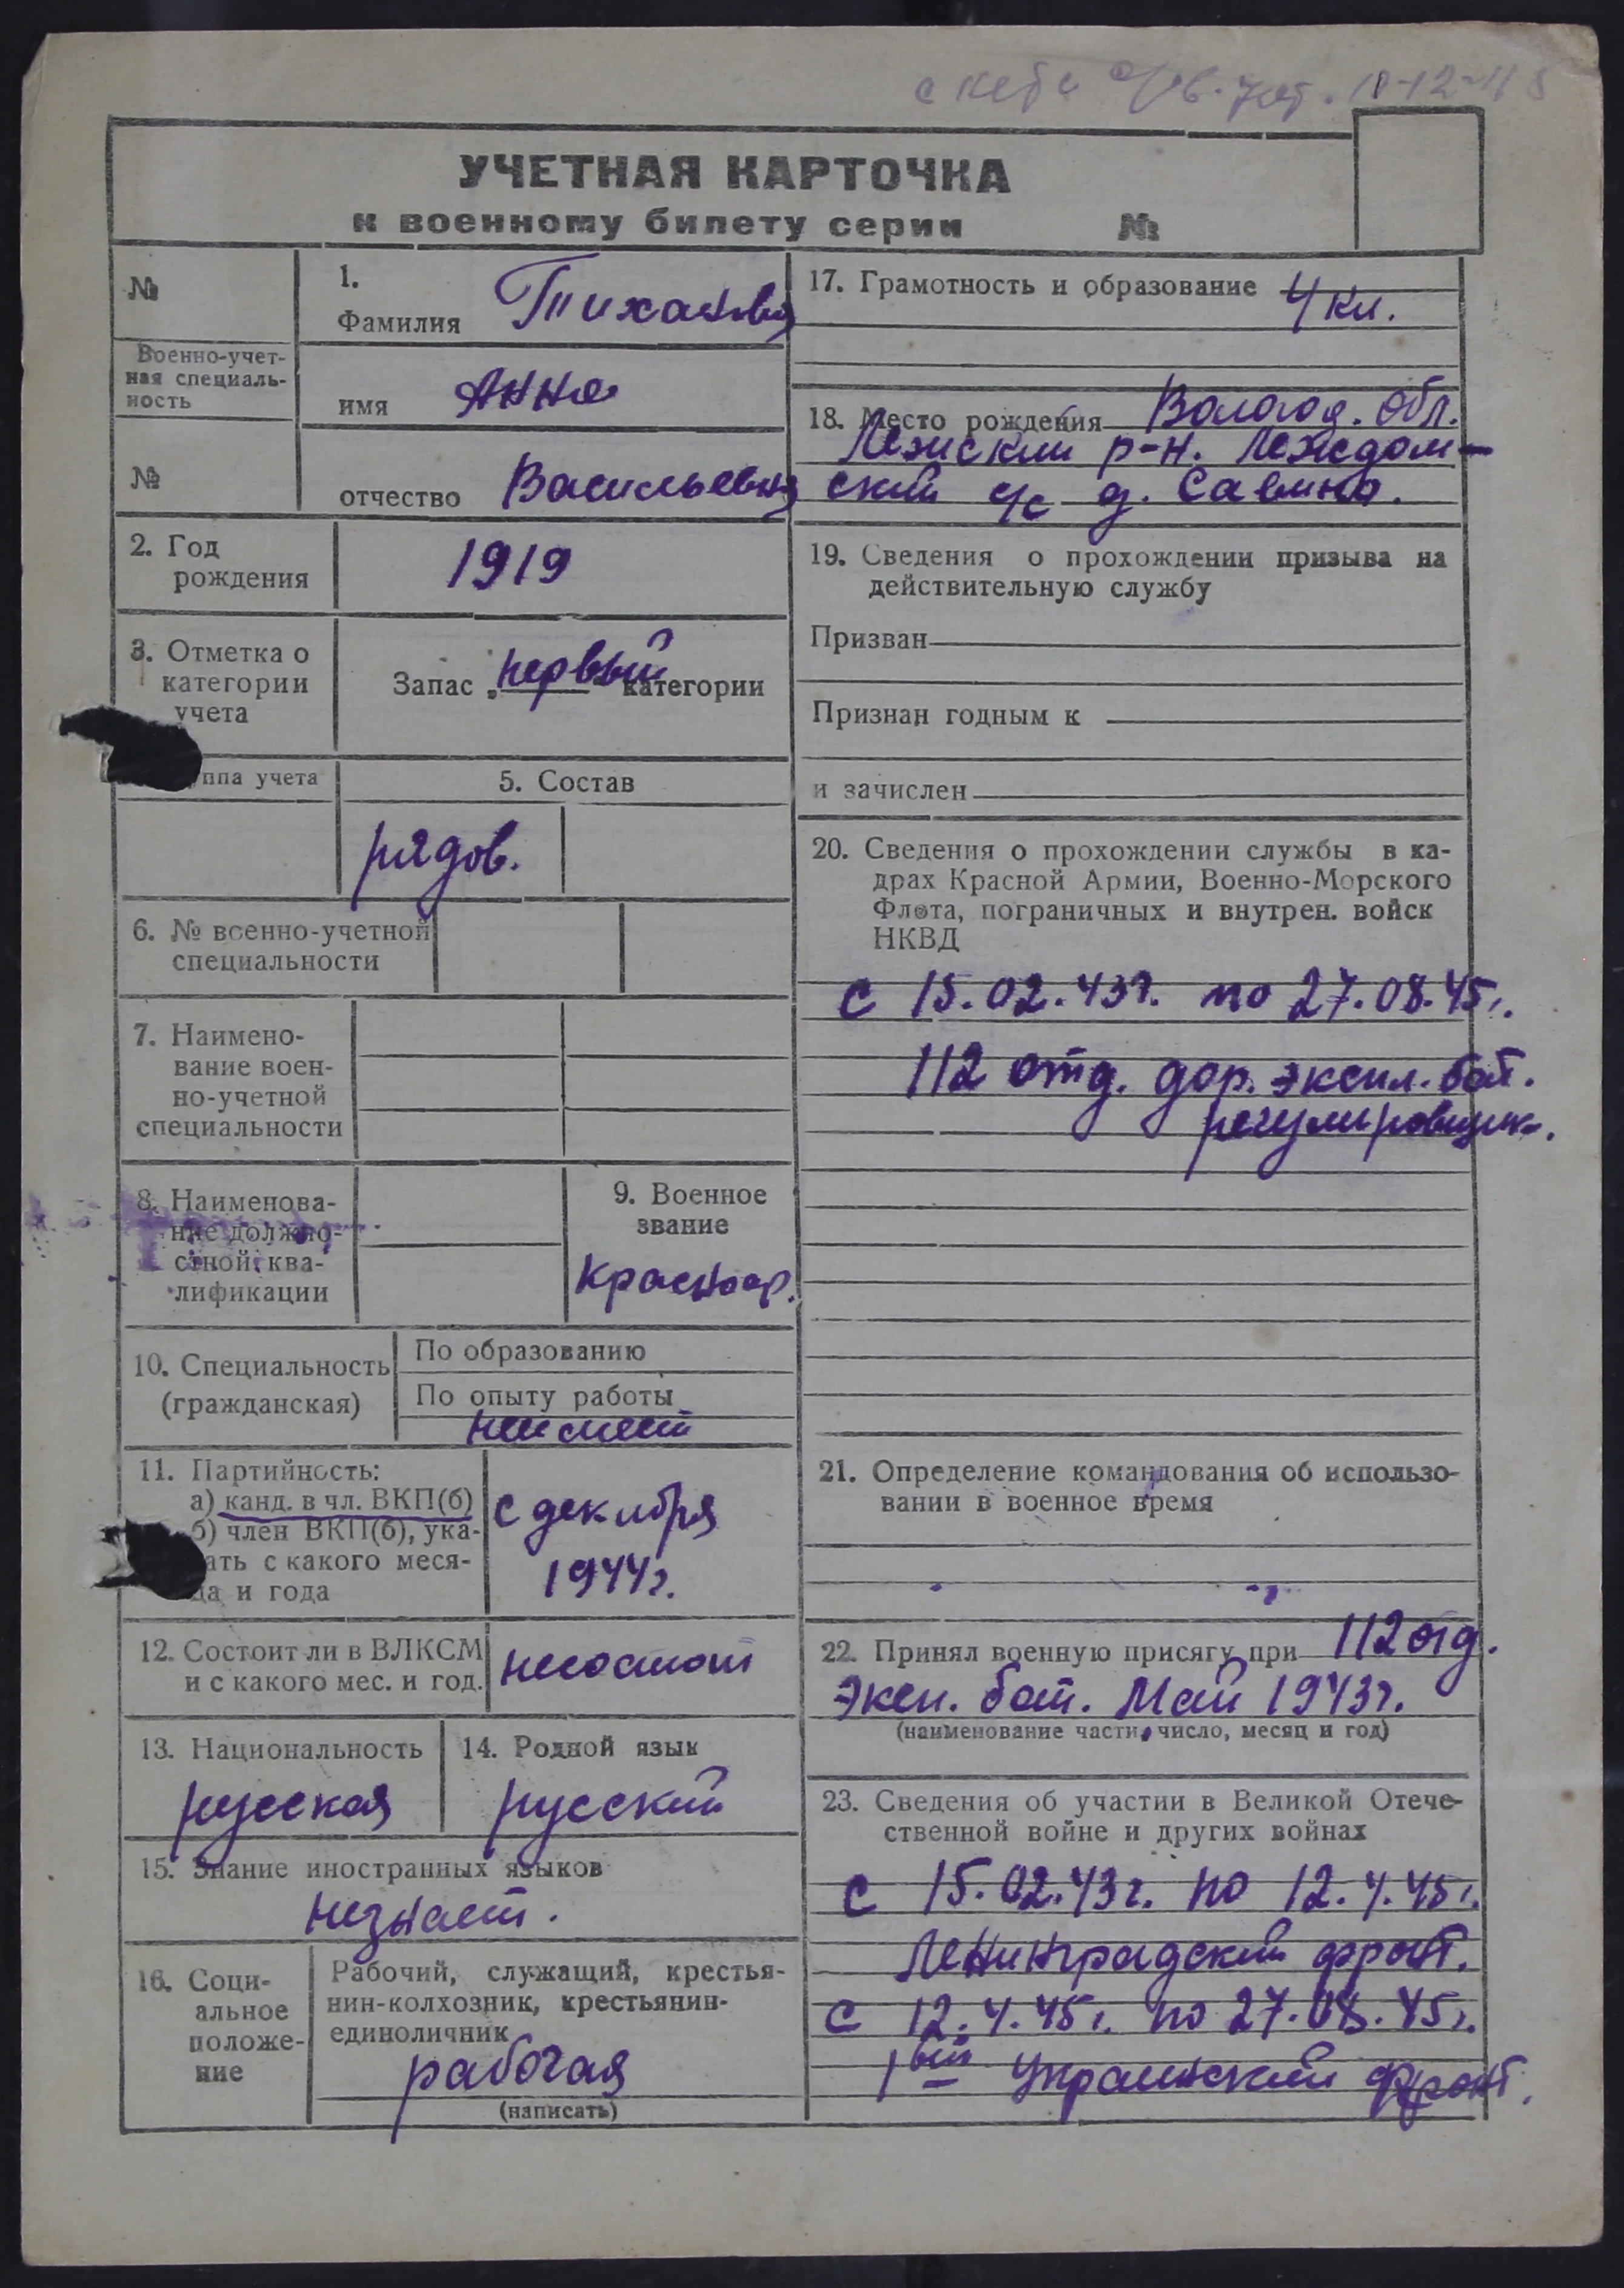 УЧЕТНАЯ КАРТОЧКА
к военному билету серии №
№
1.
Фамилия Тиханова
Военно-учет-
ная специаль-
ность
имя Анна
№
отчество Васильевна
2. Год
рождения
1919
3. Отметка о
категории
учета
Запас „первый“ категории
ппа учета
5. Состав
рядов.
6. № военно-учетной
специальности
7. Наимено-
вание воен-
но-учетной
специальности
8. Наименова-
ние должно-
стной ква-
лификации
9. Военное
звание
Красноар.
10. Специальность
(гражданская)
По образованию
По опыту работы
неимеет
11. Партийность:
а) канд. в чл. ВКП(б)
б) член ВКП(б), ука-
ать с какого меся-
ца и года
с декабря
1944г.
12. Состоит ли в ВЛКСМ
и с какого мес. и год.
несостоит
13. Национальность
русская
14. Родной язык
русский
15. Знание иностранных языков
незнает.
16. Соци-
альное
положе-
ние
Рабочий, служащий, крестья-
нин-колхозник, крестьянин-
единоличник
рабочая
(написать)
17. Грамотность и образование 4 кл.
18. Место рождения Вологод. обл.
Лежский р-н. Леждом-
ский с/с д. Савино.
19. Сведения о прохождении призыва на
действительную службу
Призван
Признан годным к
и зачислен
20. Сведения о прохождении службы в ка-
драх Красной Армии, Военно-Морского
Флота, пограничных и внутрен. войск
НКВД
с 15.02.43г. по 27.08.45г.
112 отд. дор. экспл. бат.
регулировщик.
21. Определение командования об использо-
вании в военное время
22. Принял военную присягу при 112 отд.
эксп. бат. Май 1943г.
(наименование части, число, месяц и год)
23. Сведения об участии в Великой Отече-
ственной войне и других войнах
с 15.02.43г. по 12.4.45г.
Ленинградский фронт.
с 12.4.45г. по 27.08.45г.
1вый Украинский фронт.